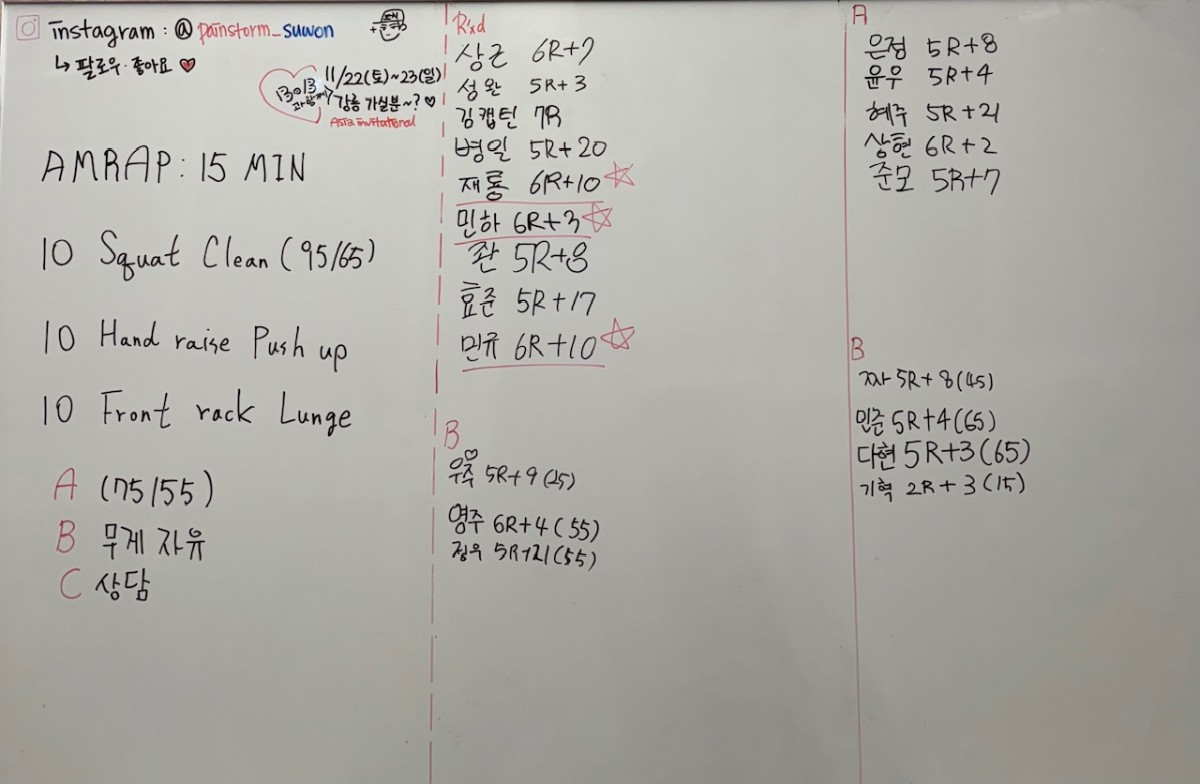 instagram : @ painstorm_suwon
↳ 팔로우·좋아요 ♥
11/22(토)~23(일)
강릉 가실분~? ♥
Asia invitational
AMRAP : 15 MIN
10 Squat Clean (95/65)
10 Hand raise Push up
10 Front rack Lunge
A (75/55)
B 무게 자유
C 상담
R'xd
상근 6R+7
성완 5R+3
김캡틴 7R
병일 5R+20
재룡 6R+10 ☆
민하 6R+3 ☆
좐 5R+8
효준 5R+17
민규 6R+10 ☆
B
우주 5R+9 (25)
영주 6R+4 (55)
정우 5R+21 (55)
A
은정 5R+8
윤우 5R+4
혜주 5R+21
상현 6R+2
준모 5R+7
B
5R+8 (45)
민준 5R+4 (65)
다현 5R+3 (65)
기혁 2R+3 (15)